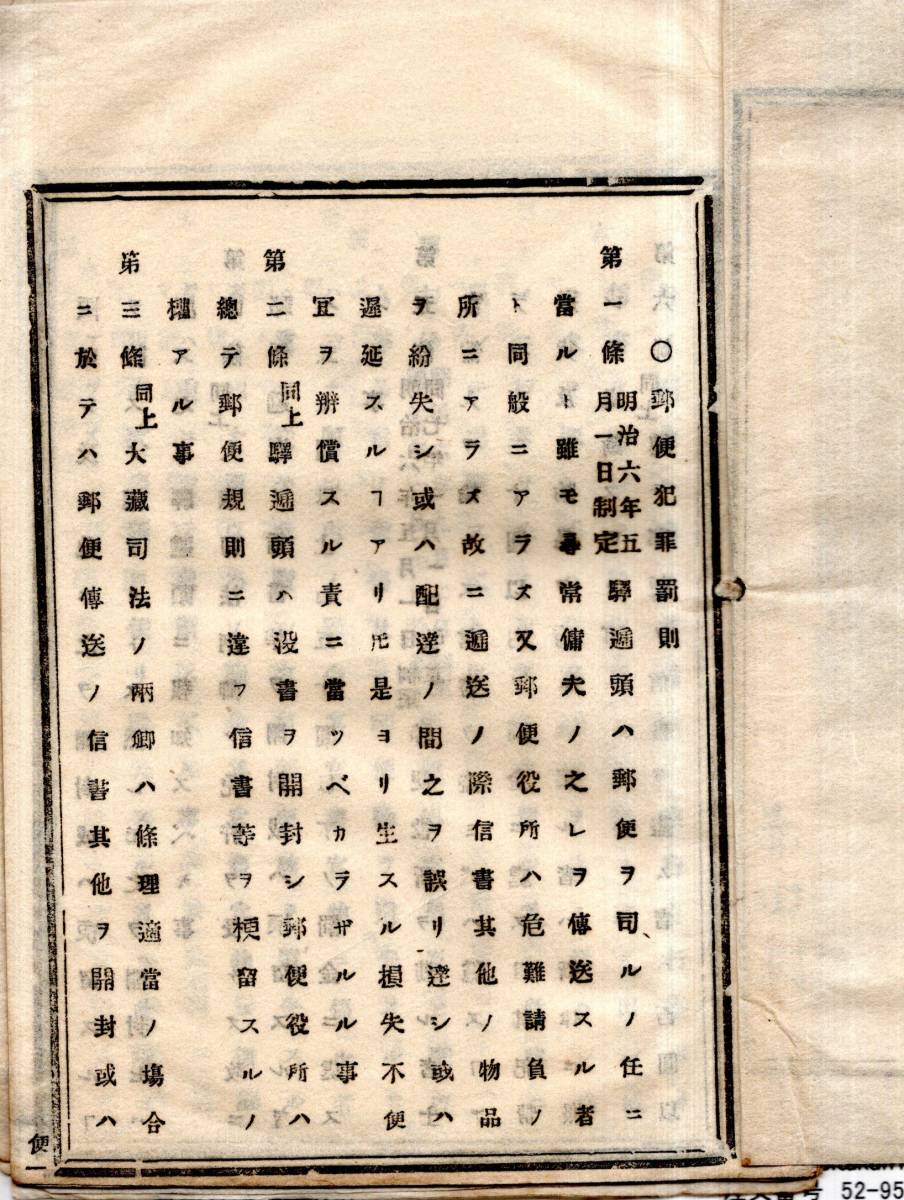 〇郵便犯罪罰則
第一條 明治六年五月一日制定 驛遞頭ハ郵便ヲ司ルノ任ニ
當ルト雖モ尋常傭夫ノ之レヲ傳送スル者
ト同般ニアラス又郵便役所ハ危難請負ノ
所ニアラズ故ニ遞送ノ際信書其他ノ物品
ヲ紛失シ或ハ配達ノ間之ヲ誤リ達シ或ハ
遲延スルヿアリ𪜈是ヨリ生スル損失不便
冝ヲ辨償スル責ニ當ツベカラザルル事
第二條 同上 驛遞頭ハ沒書ヲ開封シ郵便役所ハ
總テ郵便規則ニ違フ信書等ヲ梗留スルノ
權アル事
第三條 同上 大藏司法ノ兩卿ハ條理適當ノ塲合
ニ於テハ郵便傳送ノ信書其他ヲ開封或ハ
便一
52-95